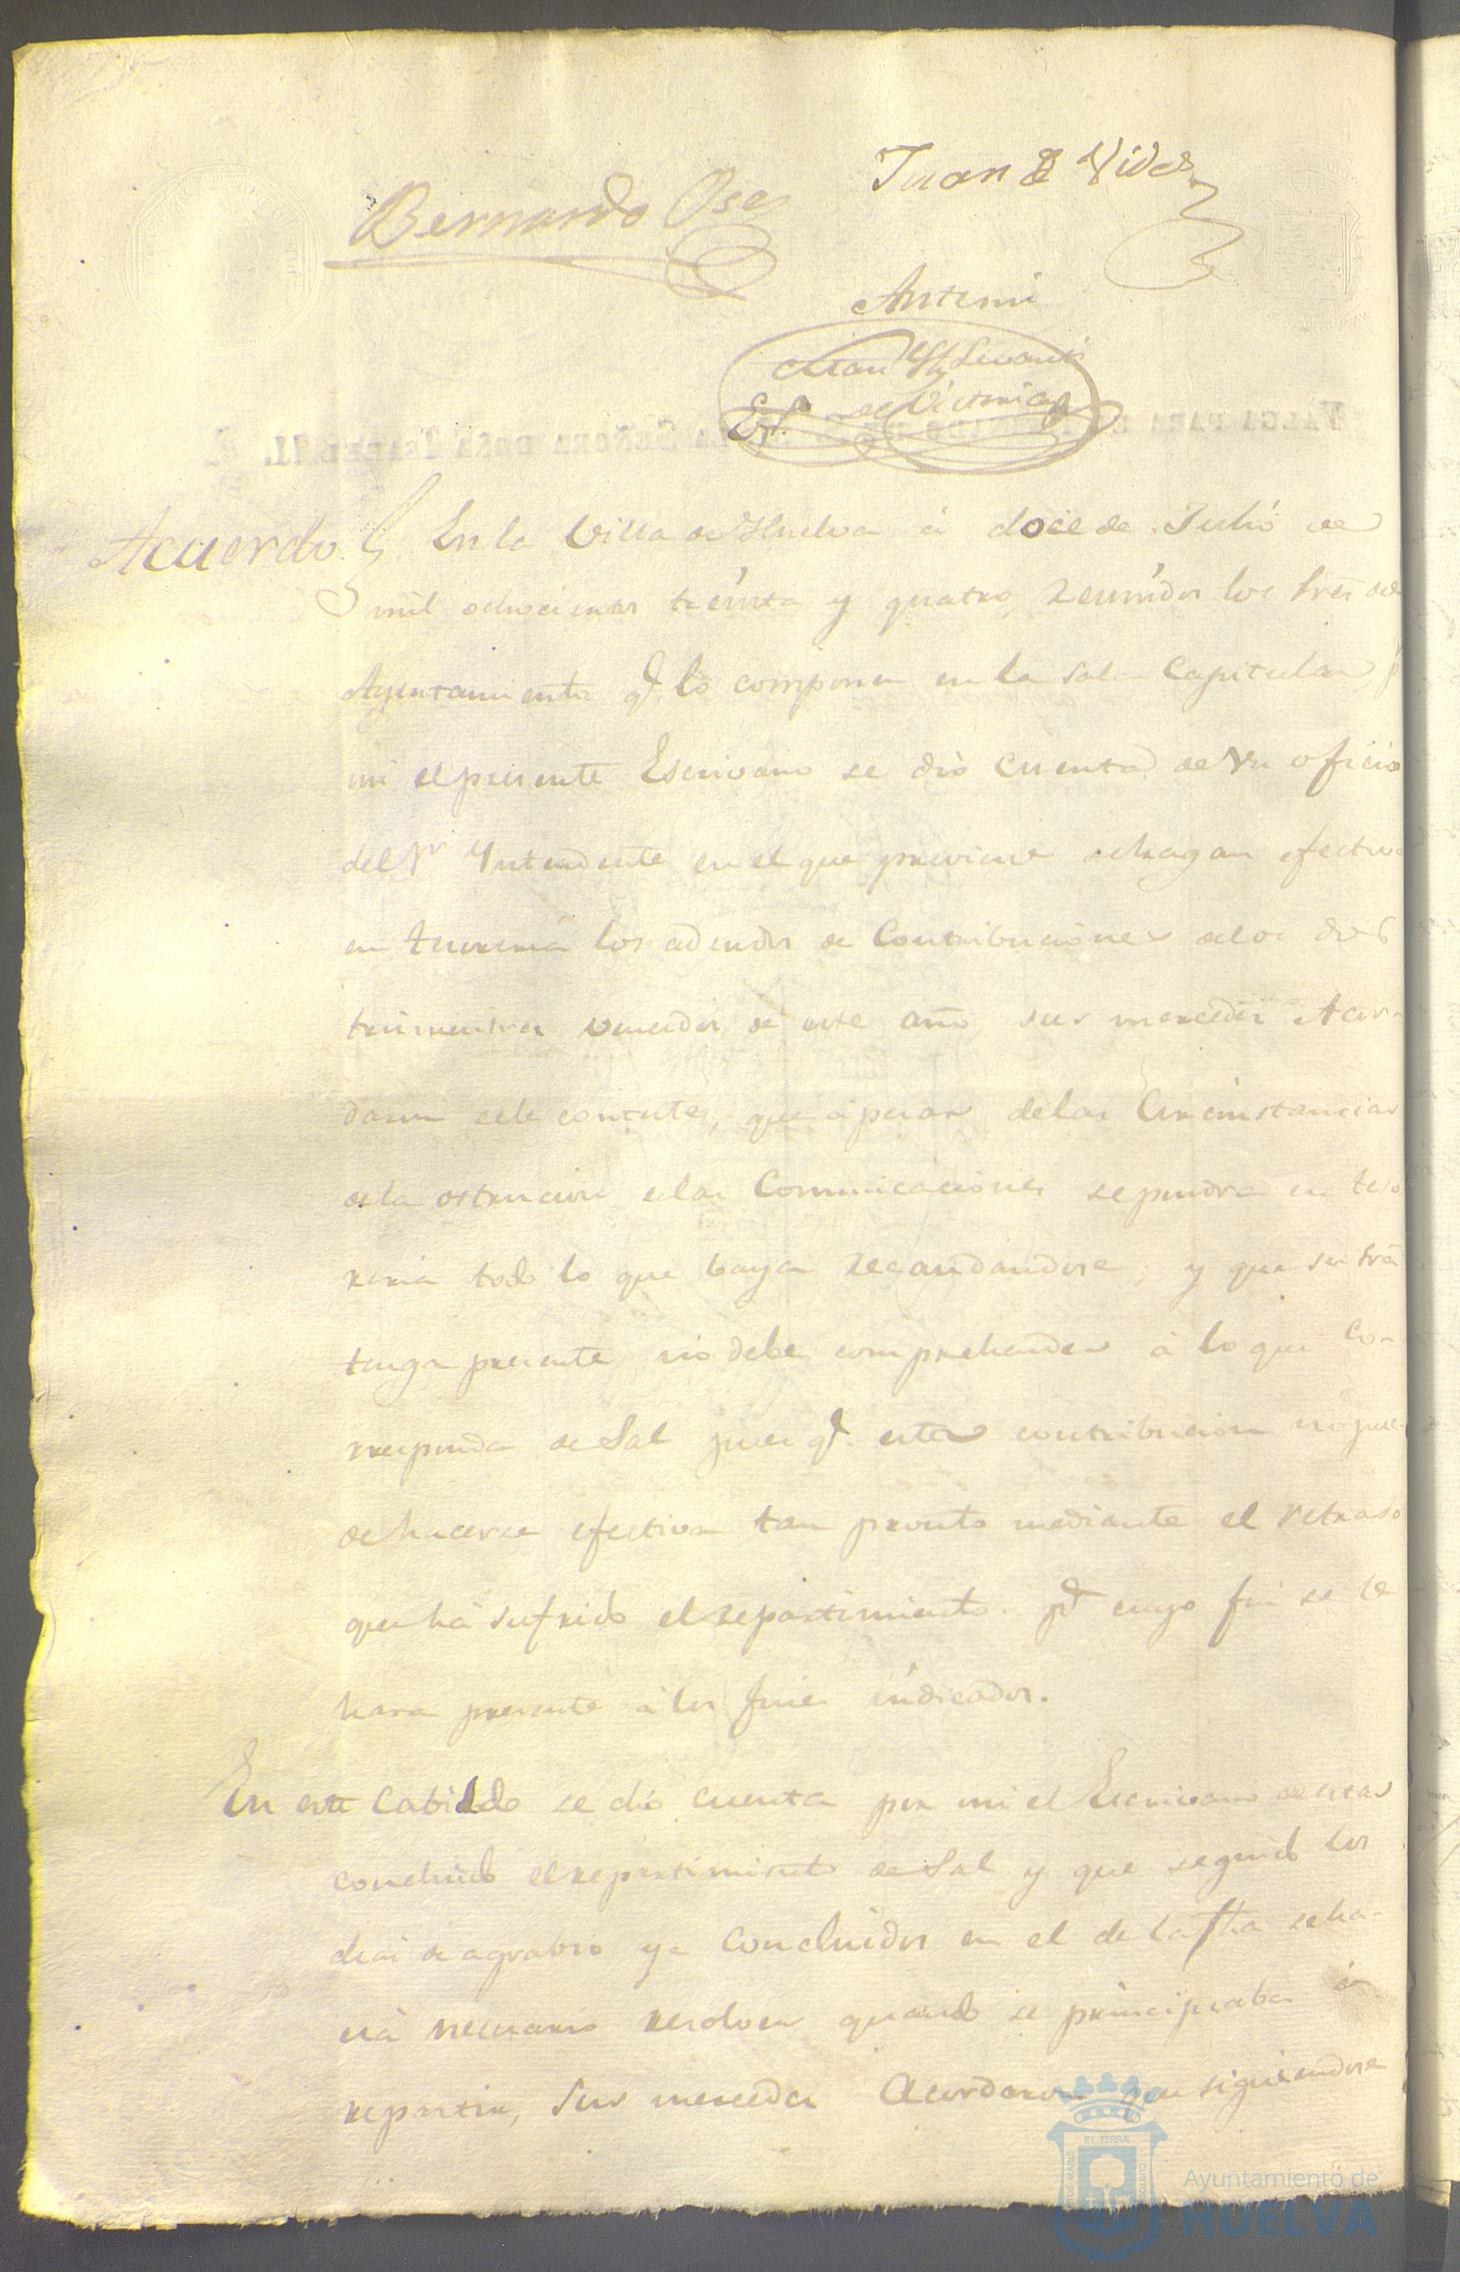 Juan Vides
Bernardo
Antemi
Juan
de Victoria
VALGA PARA EL REINADO DE S. M. LA SEÑORA DOÑA ISABEL II.
Acuerdo En la Villa de Huelva á doce de Julio de
mil ochocientos treinta y quatro, Reunidos los Sres del
Ayuntamiento q.e lo componen en la Sala Capitular, p.r
mi el presente Escrivano se dió cuenta de un oficio
del Sr Yntendente en el que previene se hagan efectivo
en tesoreria los adeudos de Contribuciones de los dos
trimestres vencidos de este año, sus mercedes Acor-
daron se le conteste, que á pesar de las Circunstancias
de la ostrucion de las Comunicaciones se pondra en teso
reria todo lo que baya Recaudandose; y que su Sría
tenga presente no debe comprehender á lo que co-
rresponda de Sal pues q.e esta contribucion no pue-
de hacerse efectiva tan pronto mediante el retraso
que há sufrido el repartimiento. p.a cuyo fin se le
hara presente á los fines indicados.
En este Cabildo se dió cuenta por mi el Escrivano de estar
concluido el repartimiento de Sal y que seguido los
dias de agrabio ya Concluidos en el de la fha se ha-
cia necesario resolver quando se principiaba á
repartir, Sus mercedes Acordaron que siguiendose
ET TERRÆ
Ayuntamiento de
HUELVA